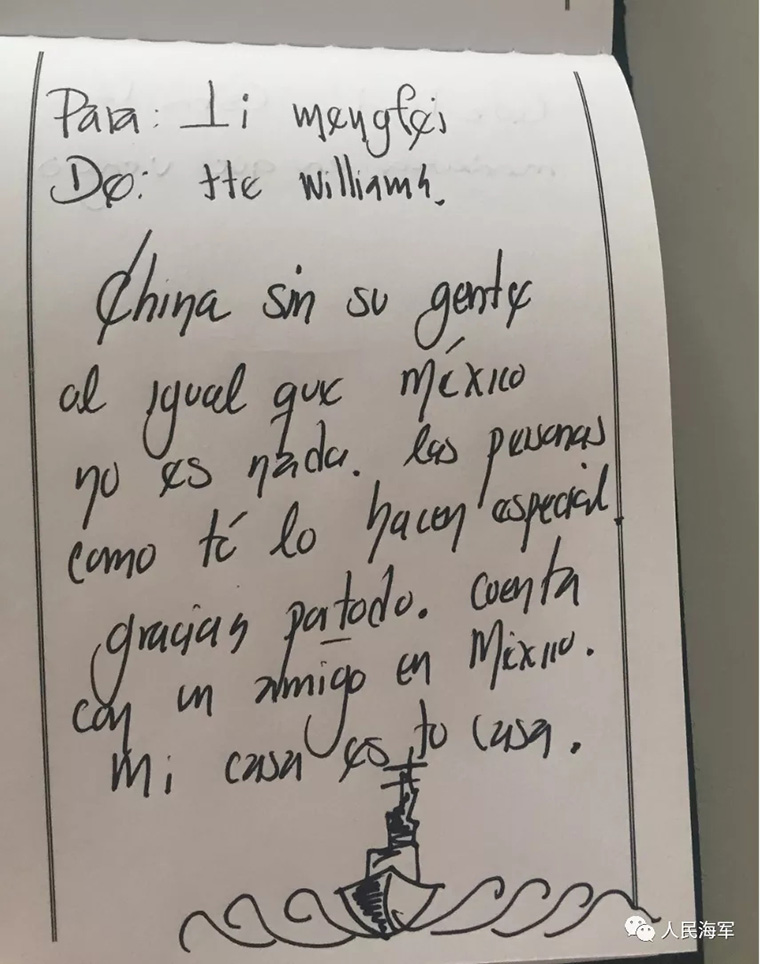 Para: Li Mengfei
De: tte Williams.
China sin su gente
al igual que México
no es nada. las personas
como tú lo hacen especial.
gracias por todo. cuenta
con un amigo en México.
Mi casa es tu casa.
人民海军